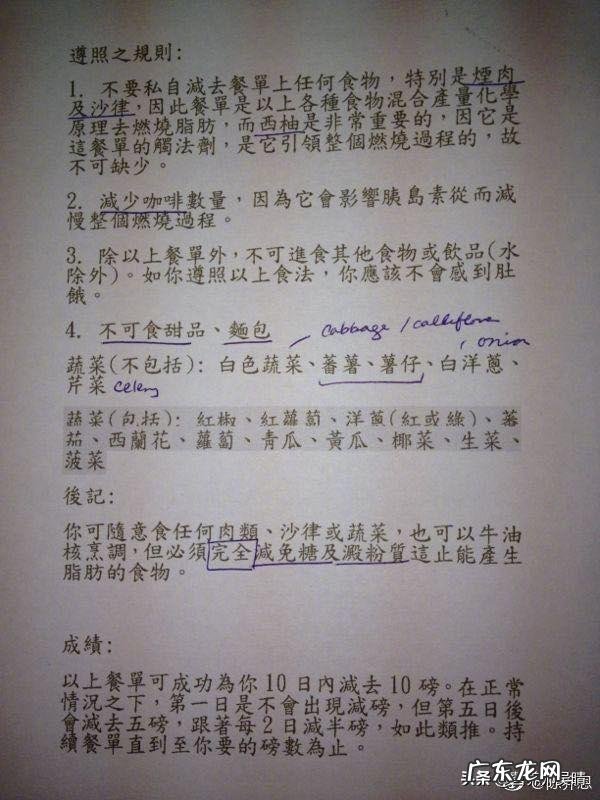 遵照之規則:
1. 不要私自減去餐單上任何食物，特別是煙肉
及沙律，因此餐單是以上各種食物混合產量化學
原理去燃燒脂肪，而西柚是非常重要的，因它是
這餐單的觸法劑，是它引領整個燃燒過程的，故
不可缺少。
2. 減少咖啡數量，因為它會影響胰島素從而減
慢整個燃燒過程。
3. 除以上餐單外，不可進食其他食物或飲品(水
除外)。如你遵照以上食法，你應該不會感到肚
餓。
4. 不可食甜品、麵包
cabbage / calliflower
, onion
蔬菜(不包括)：白色蔬菜、蕃薯、薯仔、白洋蔥、
芹菜 celery
蔬菜(包括)：紅椒、紅蘿蔔、洋蔥(紅或綠)、蕃
茄、西蘭花、蘿蔔、青瓜、黃瓜、椰菜、生菜、
菠菜
後記:
你可隨意食任何肉類、沙律或蔬菜，也可以牛油
核烹調，但必須完全減免糖及澱粉質這止能產生
脂肪的食物。
成績:
以上餐單可成功為你10日內減去10磅。在正常
情況之下，第一日是不會出現減磅，但第五日後
會減去五磅，跟著每2日減半磅，如此類推。持
續餐單直到至你要的磅數為止。
广东龙网